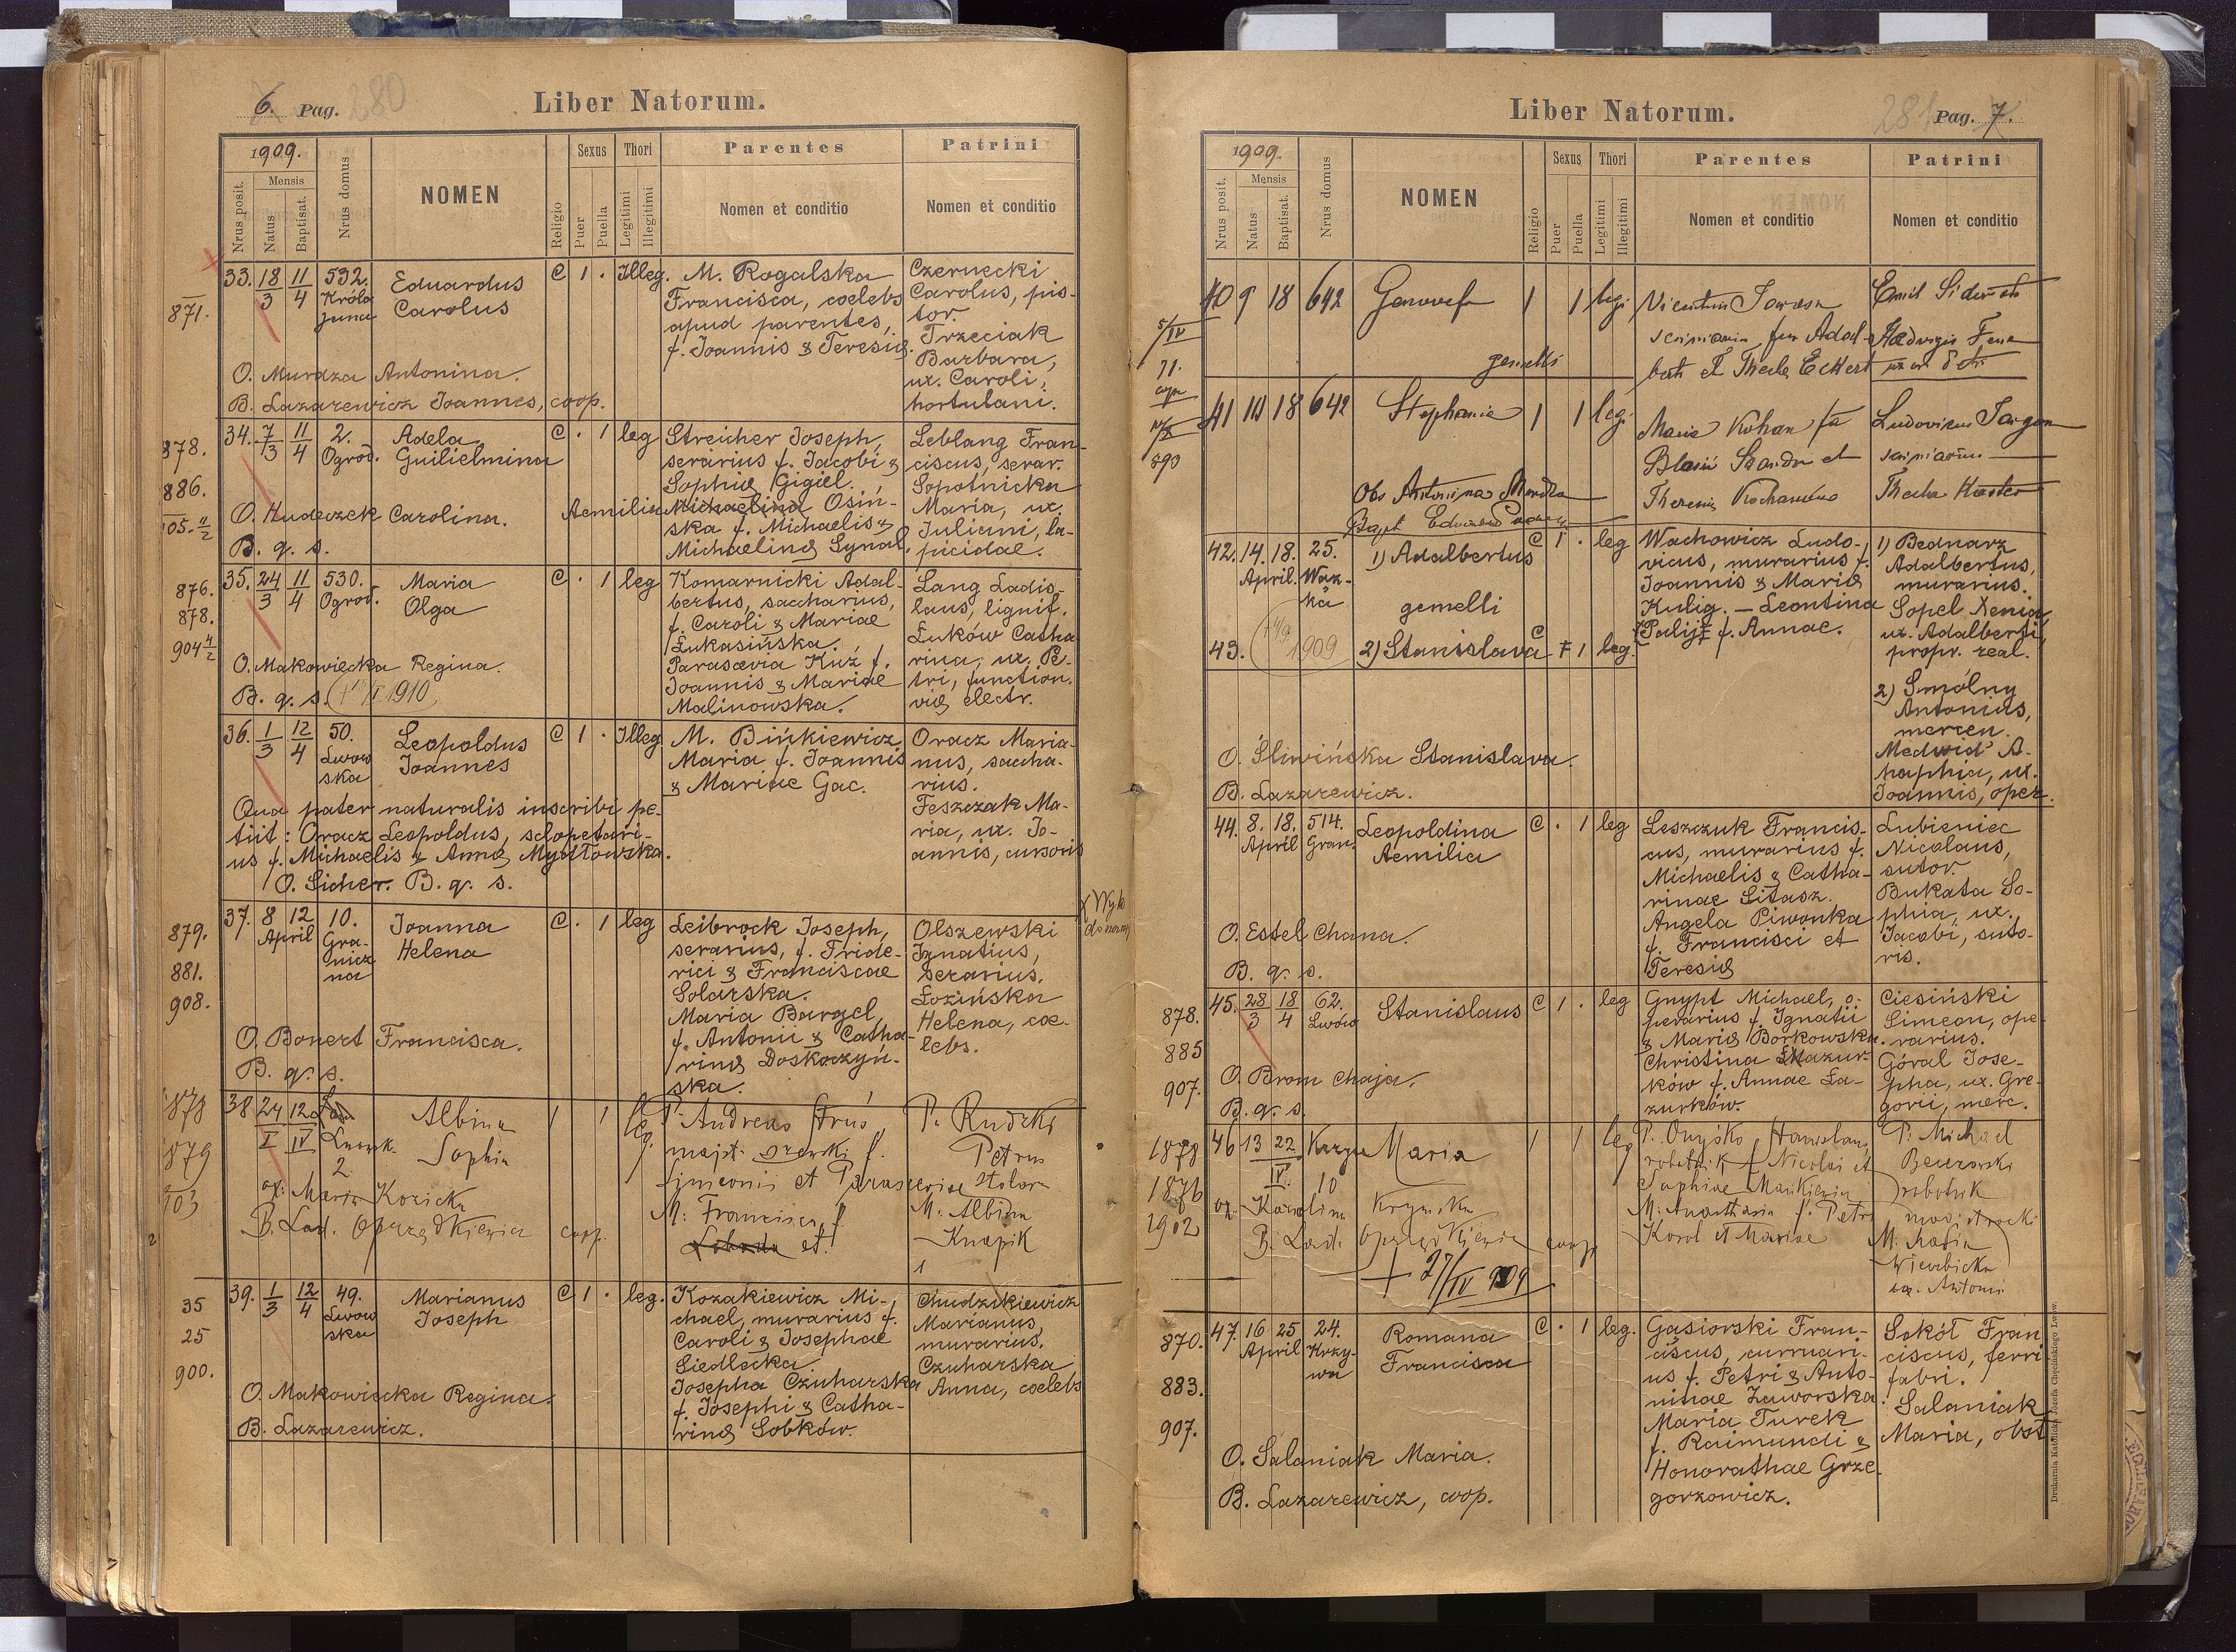 6. Pag. 280
Liber Natorum.
1909.
Nrus posit.
Mensis
Natus
Baptisat.
Nrus domus
NOMEN
Religio
Sexus
Puer
Puella
Thori
Legitimi
Illegitimi
Parentes
Nomen et conditio
Patrini
Nomen et conditio
871.
33. 18/3 11/4 532. Króla Jana
Eduardus
Carolus
C 1 . Illeg.
M. Rogalska
Francisca, coelebs
apud parentes,
f. Joannis & Teresiæ.
Czernecki
Carolus, pis-
tor.
Trzeciak
Barbara,
ux. Caroli,
hortulani.
O. Murdza Antonina.
B. Lazarewicz Joannes, coop.
878.
886.
905. 4/2
34. 7/3 11/4 2. Ogrod.
Adela
Guilielmina
C . 1 leg
Streicher Joseph,
serarius f. Jacobi &
Sophiæ Gigiel.
Aemilia Michaelina Osiń-
ska f. Michaelis &
Michaelinæ Synal.
Leblang Fran-
ciscus, serar.
Sopotnicka
Maria, ux.
Juliani, la-
picidae.
O. Hudeczek Carolina.
B. q. s.
876.
878.
904 4/2
35. 24/3 11/4 530. Ogrod.
Maria
Olga
C . 1 leg
Komarnicki Adal-
bertus, saccharius,
f. Caroli & Mariae
Łukasińska.
Parascevia Kuź f.
Joannis & Mariae
Malinowska.
Lang Ladis-
laus, lignif.
Łuków Catha
rina, ux. Pe-
tri, function.
viæ electr.
O. Makowiecka Regina.
B. q. s. 1910
36. 1/3 12/4 50. Lwow
ska
Leopoldus
Joannes
C 1 . Illeg
M. Bińkiewicz
Maria f. Joannis
& Mariae Gac.
Oracz Maria-
nus, saccha-
rius.
Feszczak Ma-
ria, ux. Jo-
annis, cursoris
Qua pater naturalis inscribi pe-
tiit: Oracz Leopoldus, sclopetari-
us f. Michaelis & Annæ Mydłowska.
O. Sicher. B. q. s.
879.
881.
908.
37. 8 12 April 10. Gra-
nicz
na
Joanna
Helena
C . 1 leg
Leibrock Joseph,
serarius, f. Fride-
rici & Franciscae
Solarska.
Maria Bargel,
f. Antonii & Catha-
rinæ Doskoczyń-
ska.
Olszewski
Ignatius,
serarius.
Łozińska
Helena, coe-
lebs.
O. Bonert Francisca.
B. q. s.
1878
1879
903
38 24 12 Lwowsk. 2
Albina
Sophia
1 1 leg.
P. Andreas Struś
f.
Simeonis et Parasceviae
M: Francisca f.
et
P. Rudzki
Petrus
stolarz
M: Albina
Knapik
ox: Maria Kozicka
B. Lad. Oprządkiewicz coop.
35
25
900.
39. 1/3 12/4 49. Lwow
ska
Marianus
Joseph
C 1 . leg.
Kozakiewicz Mi-
chael, murarius f.
Caroli & Josephae
Siedlecka.
Josepha Czuharska
f. Josephi & Catha-
rinæ Sobków.
Chudzikiewicz
Marianus,
murarius.
Czuharska
Anna, coelebs
O. Makowiecka Regina.
B. Lazarewicz.
Liber Natorum.
281 Pag. 7.
1909.
Nrus posit.
Mensis
Natus
Baptisat.
Nrus domus
NOMEN
Religio
Sexus
Puer
Puella
Thori
Legitimi
Illegitimi
Parentes
Nomen et conditio
Patrini
Nomen et conditio
40 9 18 642
Genovefa
1 1 legi
gemelli
41 10 18 642
Stephania
1 1 legi
Maria Kohan
Blasii et
Ludovicus
Thecla
Obs Antonina Murdza
Bapt
42. 14. 18. April. 25. Waz-
ka
1) Adalbertus
C 1 . leg
gemelli
43. 1909 2) Stanislava C 1 leg.
Wachowicz Ludo-
vicus, murarius f.
Joannis & Mariæ
Kulig. – Leontina
Palij f. Annae.
1) Bednarz
Adalbertus,
murarius.
Sopel Xenia
ux. Adalberti,
propr. real.
2) Smólny
Antonius,
mercen.
Medwid A-
haphia, ux.
Joannis, oper.
O. Śliwińska Stanislava.
B. Lazarewicz.
44. 8. 18. April 514. Gran.
Leopoldina
Aemilia
C . 1 leg
Leszczuk Francis-
cus, murarius f.
Michaelis & Catha-
rinae Sitasz.
Angela Piwonka
f. Francisci et
Teresiæ
Lubieniec
Nicolaus,
sutor.
Bukata So-
phia, ux.
Jacobi, suto-
ris.
O. Estel Chana.
B. q. s.
878.
885
907.
45. 28/3 18/4 62. Lwów
Stanislaus
C 1 . leg
Gnypt Michael, o-
perarius f. Ignatii
& Mariæ Borkowska.
Christina Mazur-
ków f. Annae La-
zurków.
Ciesiński
Simeon, ope-
rarius.
Góral Jose-
pha, ux. Gre-
gorii, merc.
O. Brom Chaja.
B. q. s.
1878
1876
1902
46 13 22 IV. 10
Maria
1 1 leg
P. Onyśko Stanislaus
robotnik f Nicolai et
Sophiae
M: Anasthasia f. Petri
Korol et Mariae
P: Michael
robotnik
M. Maria
Wierzbicka
ux. Antoni
ox. Karolina
B. Lad. Oprządkiewicz coop
+ 27/IV 909
870.
883.
907.
47. 16 25 April 24. Krzy-
wa
Romana
Francisca
C . 1 leg.
Gąsiorski Fran-
ciscus, curruari-
us f. Petri & Anto-
ninae Zaworska.
Maria Turek
f. Raimundi &
Honorathae Grze-
gorzowicz.
Sokół Fran
ciscus, ferri-
fabri.
Salaniak
Maria, obst
O. Salaniak Maria.
B. Lazarewicz, coop.
Drukarnia Katolicka Józefa Chęcińskiego Lwów.